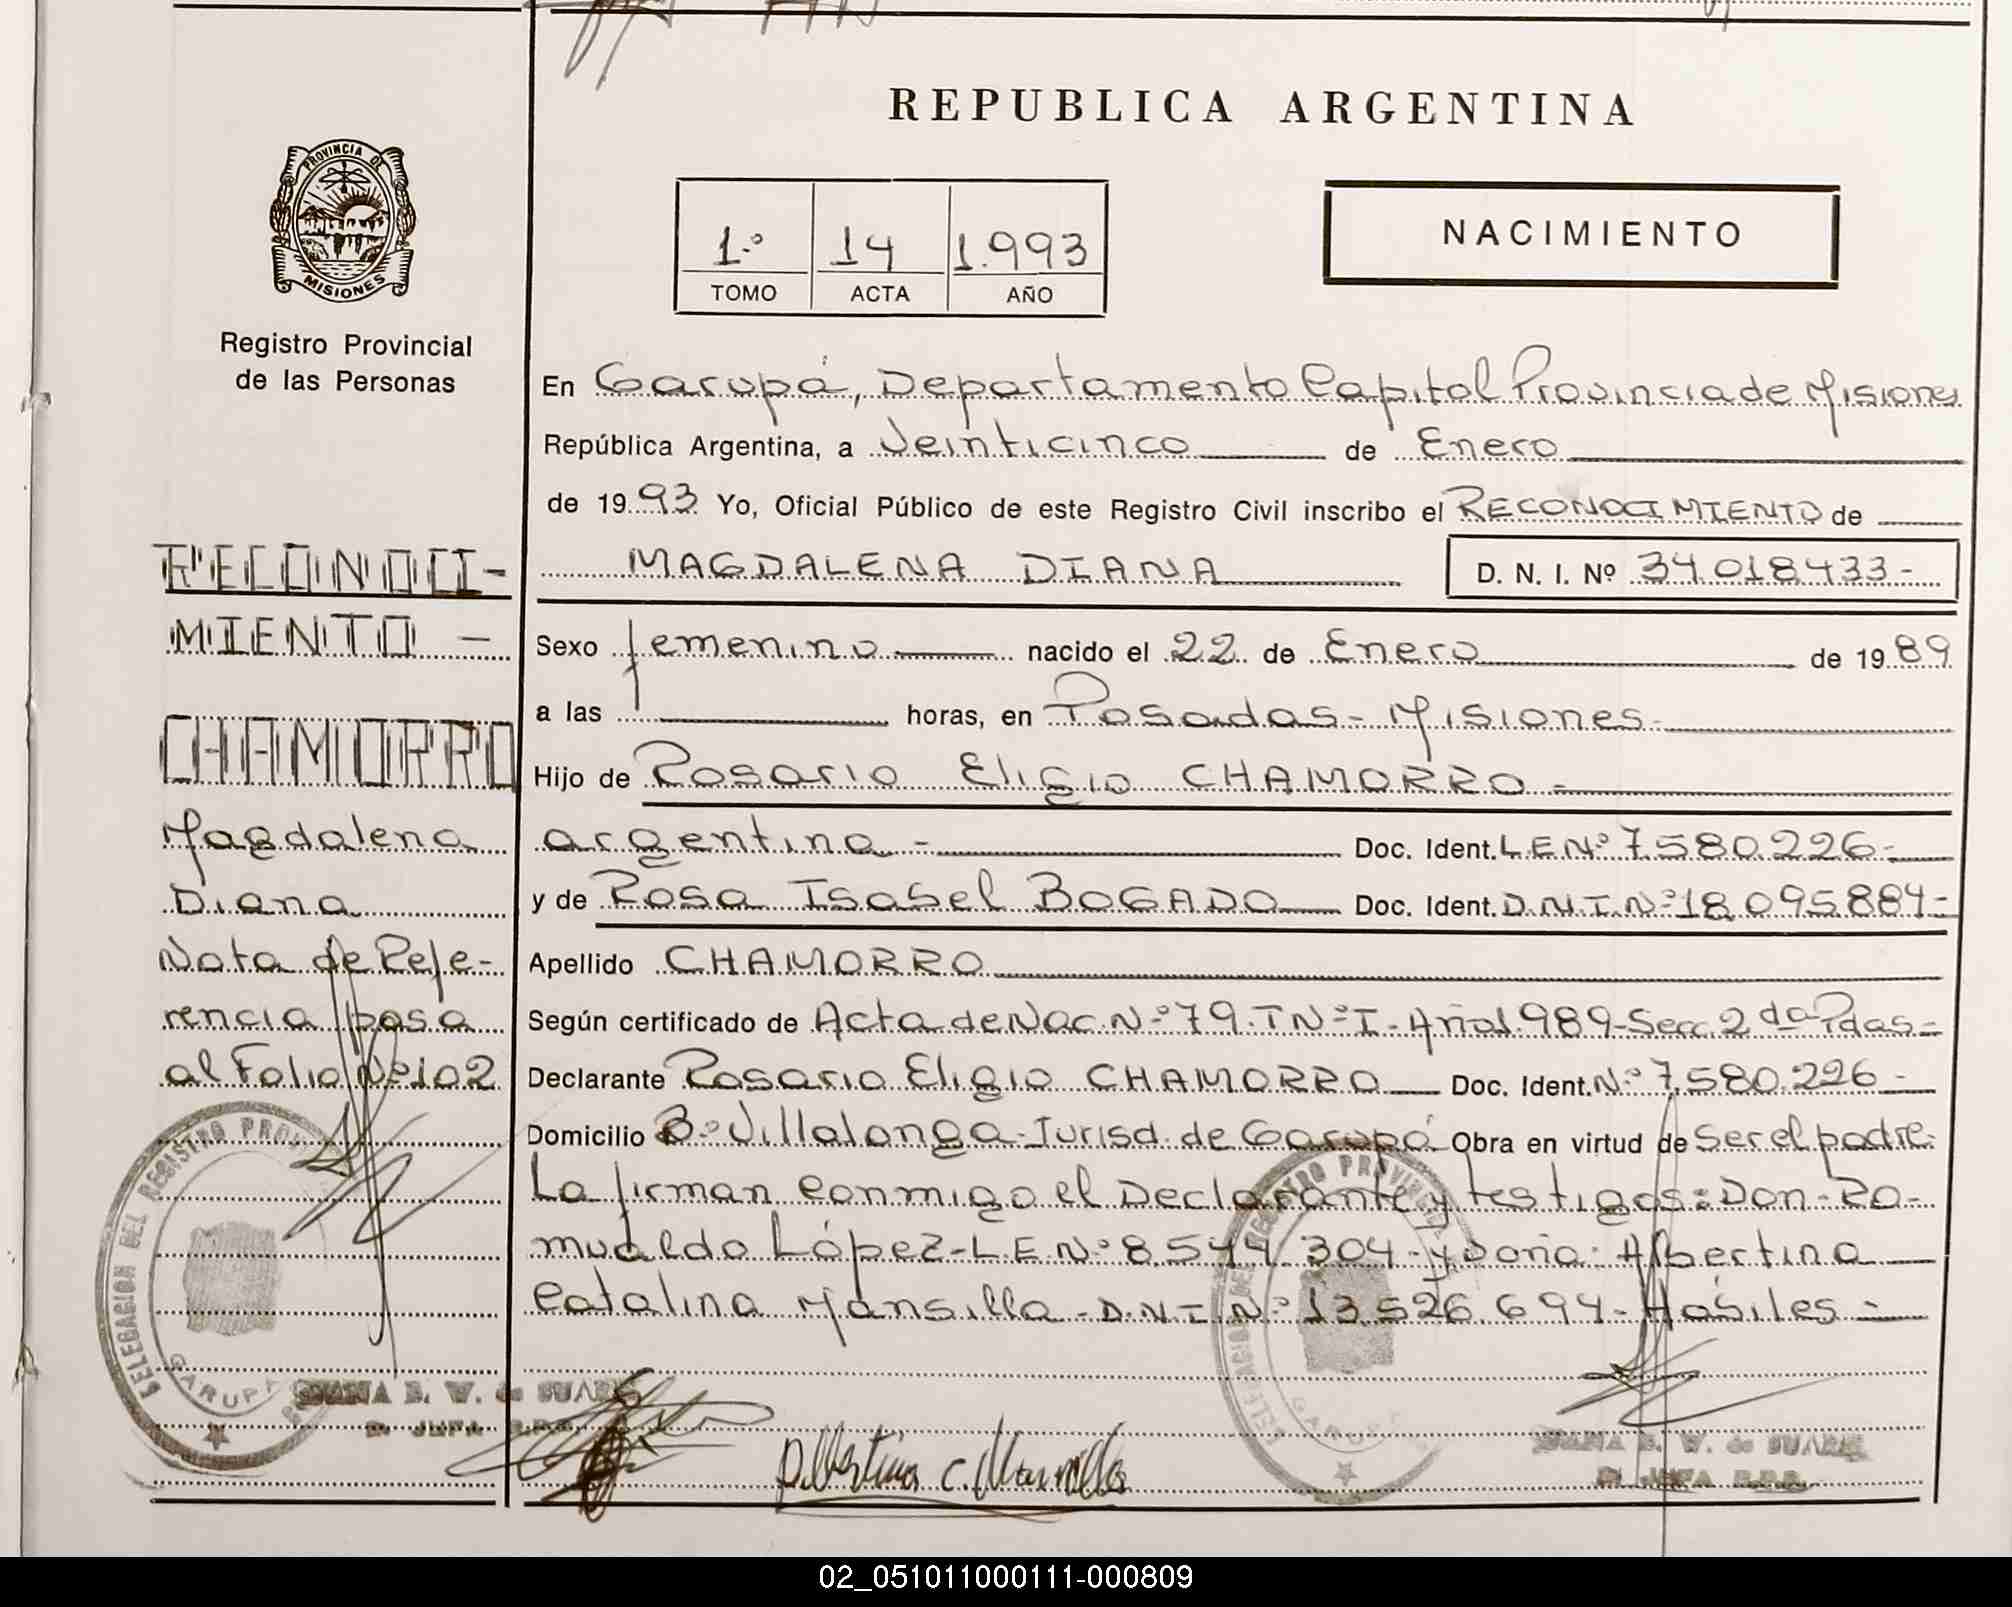 REPUBLICA ARGENTINA
PROVINCIA DE
MISIONES
Registro Provincial
de las Personas
1º 14 1.993
TOMO ACTA AÑO
NACIMIENTO
En Garupá, Departamento Capital Provincia de Misiones
República Argentina, a Veinticinco de Enero
de 1993 Yo, Oficial Público de este Registro Civil inscribo el RECONOCIMIENTO de
MAGDALENA DIANA D. N. I. Nº 34.018.433-
Sexo femenino nacido el 22 de Enero de 1989
a las horas, en Posadas - Misiones-
Hijo de Rosario Eligio CHAMORRO-
argentina - Doc. Ident. L.E.Nº 7.580.226-
y de Rosa Isabel BOGADO Doc. Ident. D.N.I.Nº 18.095.884-
Apellido CHAMORRO
Según certificado de Acta de Nac. Nº 79. T Nº I- Año 1.989- Secc. 2da Pdas-
Declarante Rosario Eligio CHAMORRO Doc. Ident. Nº 7.580.226-
Domicilio Bº Villalonga- Jurisd. de Garupá Obra en virtud de Ser el padre.
La firman conmigo el Declarante y testigos: Don- Ro-
mualdo López- L.E.Nº 8.544.304- y Doña: Albertina
Catalina Mansilla- D.N.I. Nº 13.526.694- Hábiles-
RECONOCI-
MIENTO -
CHAMORRO
Magdalena
Diana
Nota de Refe-
rencia pasa
al Folio Nº 102
DELEGACION DEL REGISTRO PROVI
GARUPA
W. de SUAREZ
JEFA
Albertina C. Mansilla
DELEGACION DEL REGISTRO PROVINC
GARUPA
W. de SUAREZ
JEFA
02_051011000111-000809